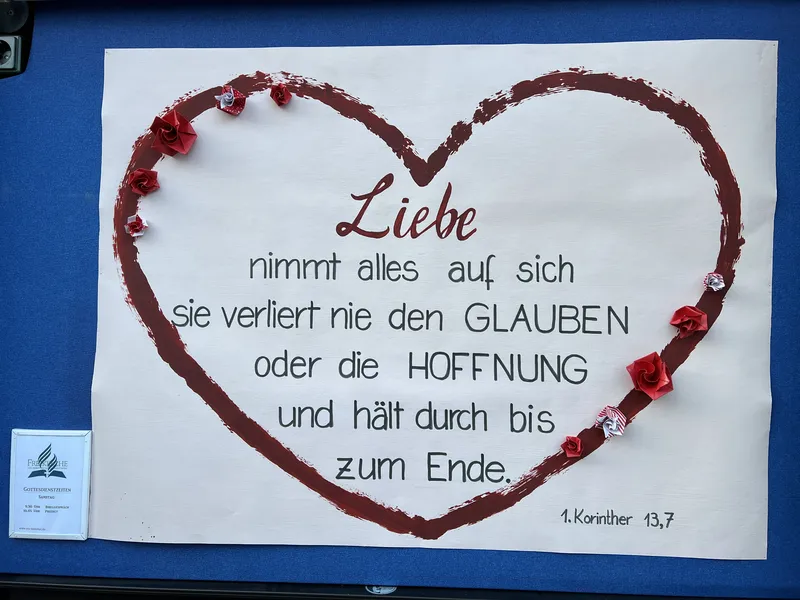 Liebe
nimmt alles auf sich
sie verliert nie den GLAUBEN
oder die HOFFNUNG
und hält durch bis
zum Ende.
1. Korinther 13,7
GOTTESDIENSTZEITEN
SAMSTAG